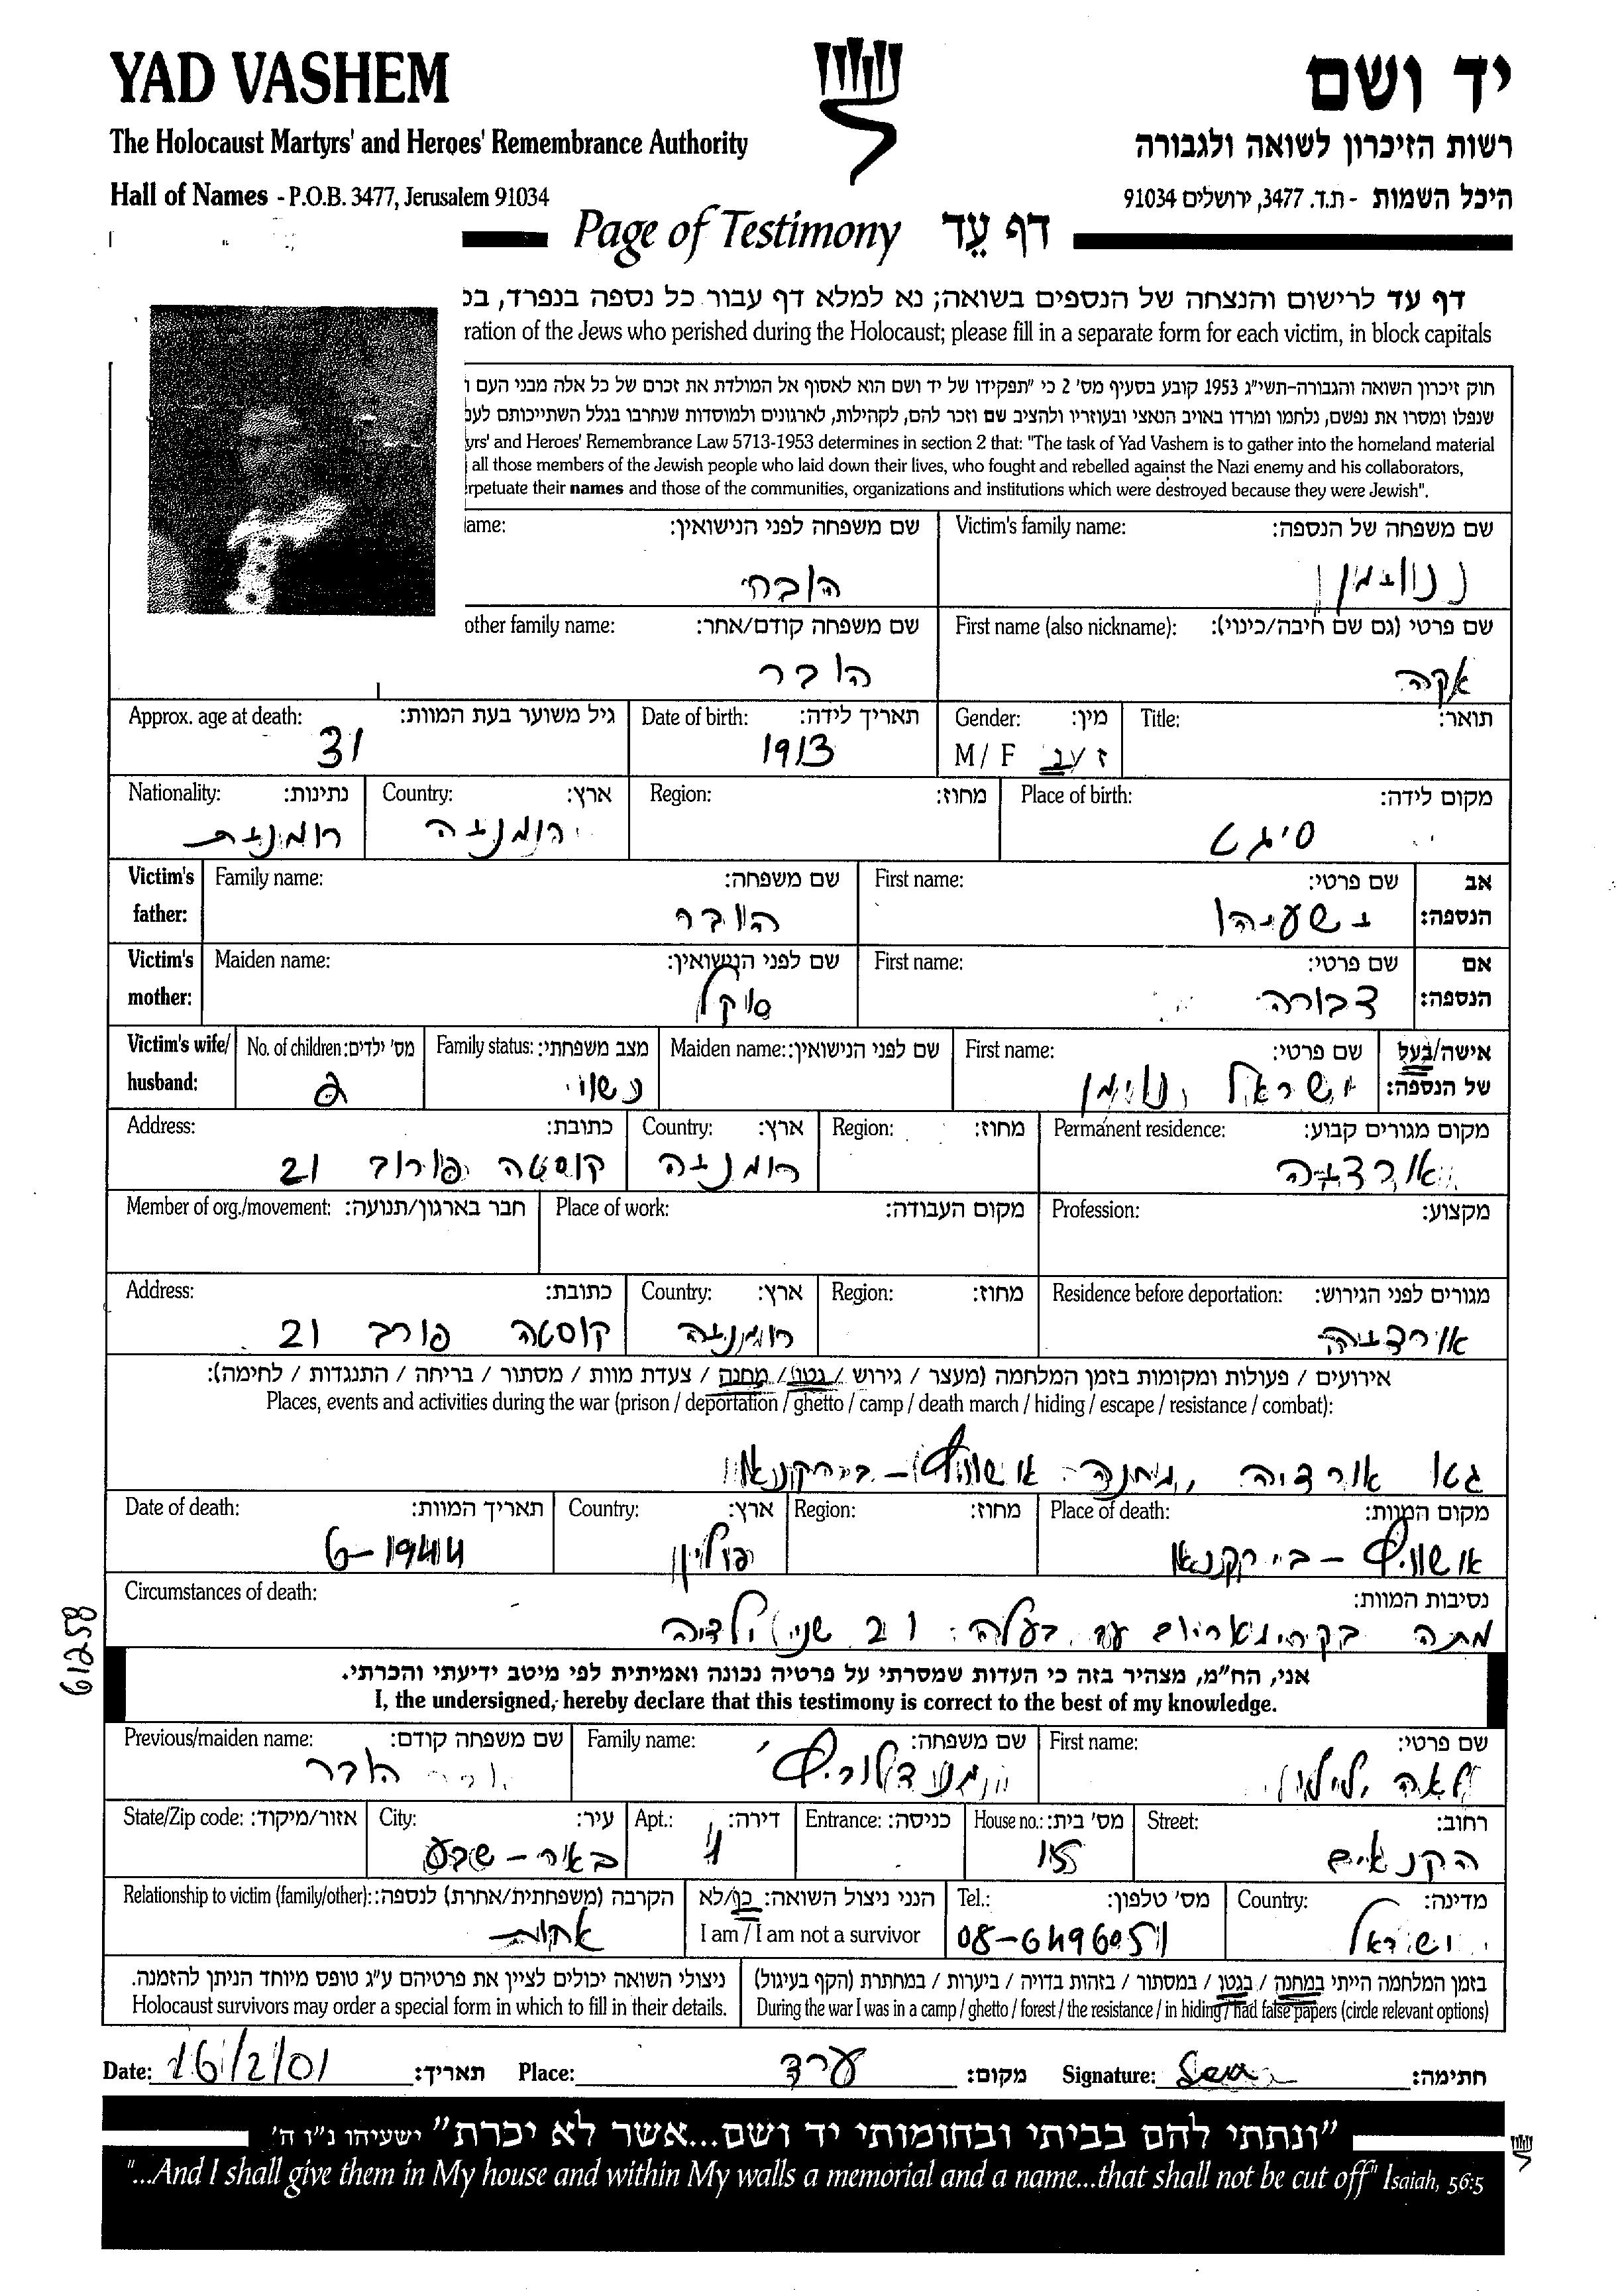 YAD VASHEM
יד ושם
The Holocaust Martyrs' and Heroes' Remembrance Authority
רשות הזיכרון לשואה ולגבורה
Hall of Names - P.O.B. 3477, Jerusalem 91034
היכל השמות - ת.ד. 3477, ירושלים 91034
Page of Testimony דף עֵד
דף עד לרישום והנצחה של הנספים בשואה; נא למלא דף עבור כל נספה בנפרד, בכ
ration of the Jews who perished during the Holocaust; please fill in a separate form for each victim, in block capitals
חוק זיכרון השואה והגבורה-תשי"ג 1953 קובע בסעיף מס' 2 כי "תפקידו של יד ושם הוא לאסוף אל המולדת את זכרם של כל אלה מבני העם ו
שנפלו ומסרו את נפשם, נלחמו ומרדו באויב הנאצי ובעוזריו ולהציב שם וזכר להם, לקהילות, לארגונים ולמוסדות שנחרבו בגלל השתייכותם לעם
yrs' and Heroes' Remembrance Law 5713-1953 determines in section 2 that: "The task of Yad Vashem is to gather into the homeland material
all those members of the Jewish people who laid down their lives, who fought and rebelled against the Nazi enemy and his collaborators,
rpetuate their names and those of the communities, organizations and institutions which were destroyed because they were Jewish".
Victim's family name: שם משפחה של הנספה:
ame: שם משפחה לפני הנישואין:
First name (also nickname): שם פרטי (גם שם חיבה/כינוי):
other family name: שם משפחה קודם/אחר:
הובר
Title: תואר:
Gender: מין:
M / F ז / נ
Date of birth: תאריך לידה:
1913
Approx. age at death: גיל משוער בעת המוות:
31
Place of birth: מקום לידה:
סיגט
Region: מחוז:
Country: ארץ:
רומניה
Nationality: נתינות:
רומנית
Victim's father: אב הנספה:
First name: שם פרטי:
ישעיהו
Family name: שם משפחה:
הובר
Victim's mother: אם הנספה:
First name: שם פרטי:
דבורה
Maiden name: שם לפני הנישואין:
Victim's wife/ husband: אישה/בעל של הנספה:
First name: שם פרטי:
ישראל
Maiden name: שם לפני הנישואין:
Family status: מצב משפחתי:
נשוי
No. of children: מס' ילדים:
2
Permanent residence: מקום מגורים קבוע:
אורדיה
Region: מחוז:
Country: ארץ:
רומניה
Address: כתובת:
קוסטה פורב 21
Profession: מקצוע:
Place of work: מקום העבודה:
Member of org./movement: חבר בארגון/תנועה:
Residence before deportation: מגורים לפני הגירוש:
אורדיה
Region: מחוז:
Country: ארץ:
רומניה
Address: כתובת:
קוסטה פורב 21
אירועים / פעולות ומקומות בזמן המלחמה (מעצר / גירוש / גטו / מחנה / צעדת מוות / מסתור / בריחה / התנגדות / לחימה):
Places, events and activities during the war (prison / deportation / ghetto / camp / death march / hiding / escape / resistance / combat):
גטו אורדיה, מחנה אושוויץ - בירקנאו
Place of death: מקום המוות:
אושוויץ - בירקנאו
Region: מחוז:
Country: ארץ:
פולין
Date of death: תאריך המוות:
6-1944
Circumstances of death: נסיבות המוות:
מתה בקרימטוריום עם בעלה ו 2 שני ילדיה
61258
אני, הח"מ, מצהיר בזה כי העדות שמסרתי על פרטיה נכונה ואמיתית לפי מיטב ידיעתי והכרתי.
I, the undersigned, hereby declare that this testimony is correct to the best of my knowledge.
First name: שם פרטי:
לאה
Family name: שם משפחה:
Previous/maiden name: שם משפחה קודם:
הובר
Street: רחוב:
הקנאים
House no.: מס' בית:
Entrance: כניסה:
Apt.: דירה:
City: עיר:
באר-שבע
State/Zip code: אזור/מיקוד:
Country: מדינה:
ישראל
Tel.: מס' טלפון:
08-6496051
הנני ניצול השואה: כן/לא
I am / I am not a survivor
Relationship to victim (family/other): הקרבה (משפחתית/אחרת) לנספה:
אחות
בזמן המלחמה הייתי במחנה / בגטו / במסתור / בזהות בדויה / ביערות / במחתרת (הקף בעיגול)
During the war I was in a camp / ghetto / forest / the resistance / in hiding / had false papers (circle relevant options)
ניצולי השואה יכולים לציין את פרטיהם ע"ג טופס מיוחד הניתן להזמנה.
Holocaust survivors may order a special form in which to fill in their details.
Date: 16/2/01 תאריך: Place: ערד מקום: Signature: Lea חתימה:
"ונתתי להם בביתי ובחומותי יד ושם...אשר לא יכרת" ישעיהו נ"ו ה'
"...And I shall give them in My house and within My walls a memorial and a name...that shall not be cut off" Isaiah, 56:5